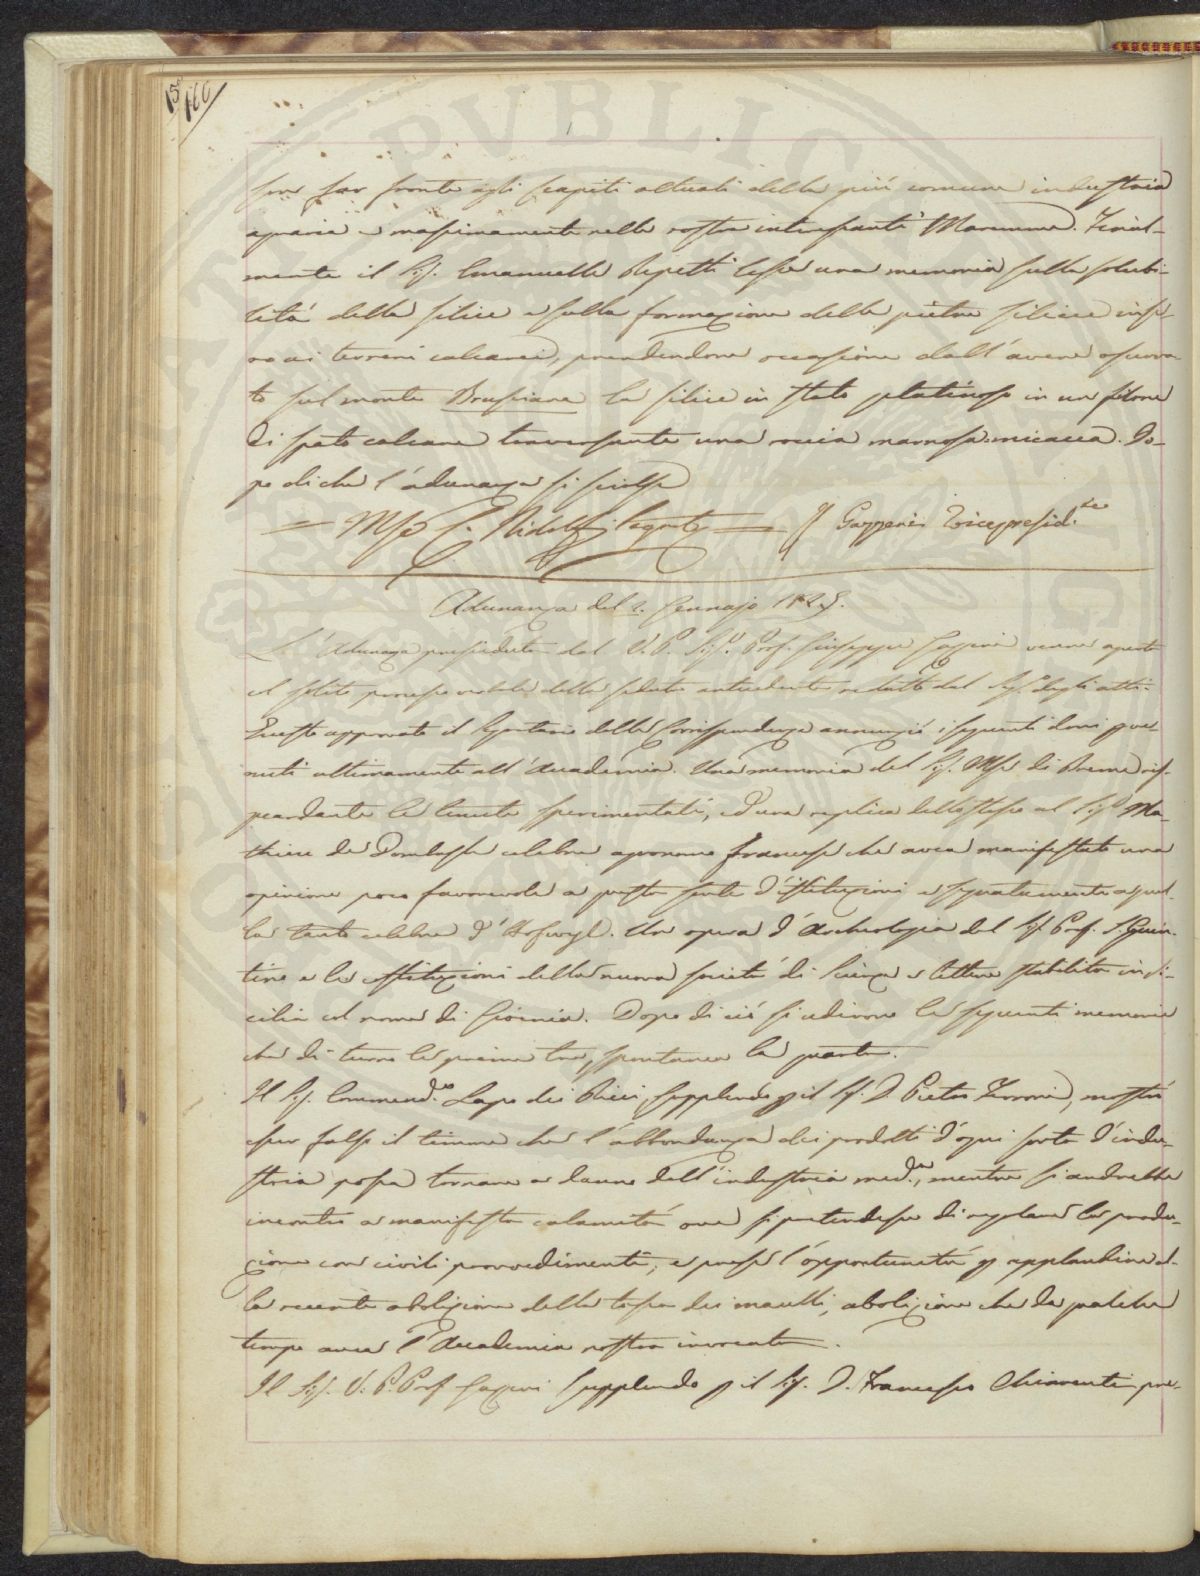 160
per far fronte agli scapiti attuali della più comune industria
agraria e massimamente nelle nostre interessanti Maremme. Final-
mente il Sig. Emanuelle Repetti lesse una memoria sulla solubi-
lità della silice e sulla formazione delle pietre silicee
terreni calcarei, prendendone occasione dall'avere osserva
to sul monte la silice in stato gelatinoso in un filone
di spato calcare traversante una roccia marnosa micacea. Do-
po di che l'adunanza si sciolse
= C. Ridolfi Segret. = G Gazzeri Vicepresid.te
Adunanza del 2. Gennajo 182
L'Adunanza presieduta dal V. P. Sig. Prof. Giuseppe Gazzeri venne aperta
col solito processo verbale della seduta antecedente redatto dal Seg. degli atti.
Questo approvato il Segretario delle Corrispondenze annunziò i seguenti doni perve
nuti ultimamente all'Accademia. Una memoria del Sig. Mse. di Breme ris-
guardante le tenute sperimentali, ed una replica dello stesso al Sig. Ma-
thieu de Dombasle celebre agronomo francese che avea manifestato una
opinione poco favorevole a questa sorte d'istituzioni e segnatamente a quel
la tanto celebre d'Hofwyl. Un opera d'Archeologia del Sig. Prof. S. Quin-
tino e le costituzioni della nuova società di Scienze e lettere stabilita in Si-
cilia col nome di Gioenia. Dopo di ciò si udirono le seguenti memorie
che di turno le prime tre, spontanea la quarta.
Il Sig. Commend. Lapo dei Ricci, supplendo p il Sig. D. Pietro Ferroni, mostrò
esser falso il timore che l'abbondanza dei prodotti d'ogni sorta d'indu-
stria possa tornare a danno dell'industria med.a, mentre si andrebbe
incontro a manifesta calamità ove si pretendesse di regolare la produ-
zione con civili provvedimenti, e prese l'opportunità p applaudire al-
la recente abolizione della tassa dei macelli, abolizione che da qualche
tempo avea l'Accademia nostra invocata.
Il Sig. V. P. Prof. Gazzeri supplendo p il Sig. D. Francesco Chiarenti pre-